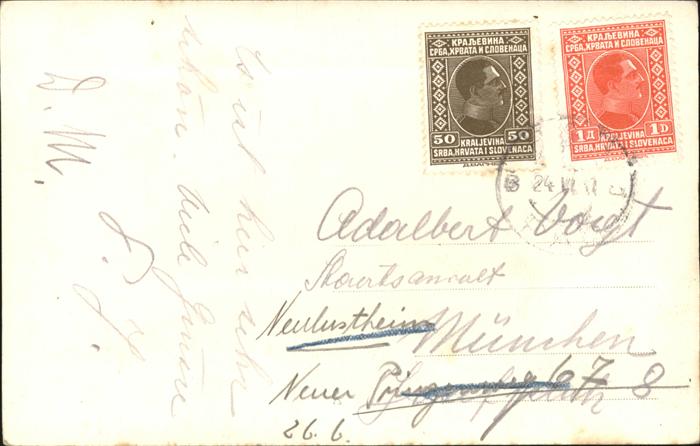 Es ist hier sehr
schön. Viele Grüsse
D. M.
КРАЉЕВИНА
СРБА, ХРВАТА И СЛОВЕНАЦА
50 50
KRALJEVINA
SRBA, HRVATA I SLOVENACA
КРАЉЕВИНА
СРБА, ХРВАТА И СЛОВЕНАЦА
1 Д 1 D
KRALJEVINA
SRBA, HRVATA I SLOVENACA
24
Adalbert Voigt
Staatsanwalt
Neulustheim
München
Neuer
67 8
26. 6.